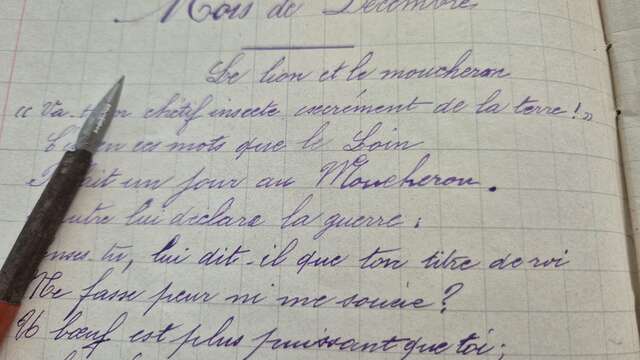 Mois de Décembre
Le lion et le moucheron
« Va chétif insecte excrément de la terre ! »
en ces mots que le Loin
un jour au Moucheron.
lui déclara la guerre ;
tu, lui dit-il que ton titre de roi
Me fasse peur ni me soucie ?
bœuf est plus puissant que toi ;